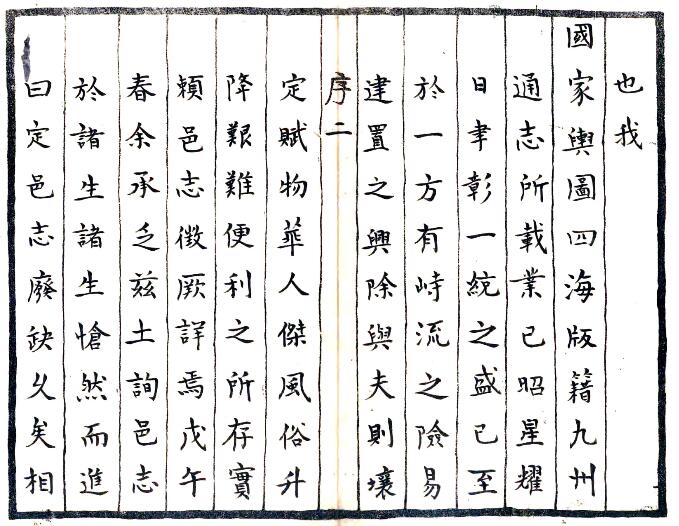 也我
國家輿圖四海版籍九州
通志所載業已昭星耀
日聿彰一統之盛已至
於一方有峙流之險易
建置之興除與夫則壤
序二
定賦物華人傑風俗升
降艱難便利之所存實
頼邑志徵厥詳焉戊午
春余承乏茲土詢邑志
於諸生諸生愴然而進
曰定邑志廢缺久矣相